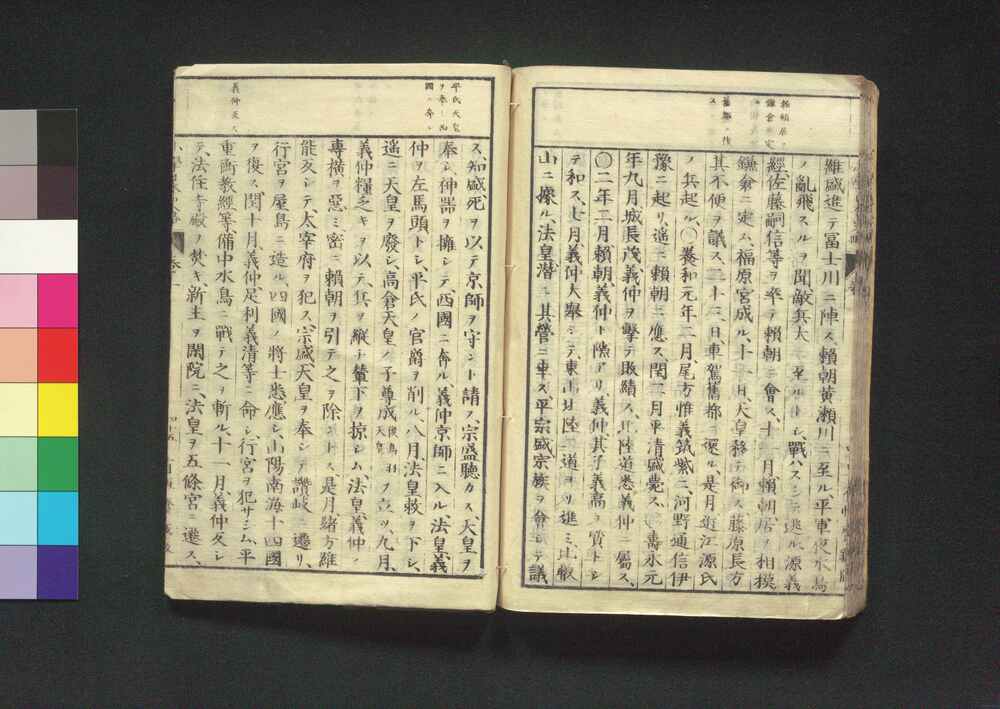 維盛進テ富士川ニ陣ス、頼朝黄瀬川ニ至ル平軍夜水鳥
ノ亂飛スルヲ聞敵兵大 至ルトシ、戰ハスシテ逃ル源義
經、佐藤嗣信等ヲ率テ頼朝ニ會ス、十 月頼朝居ヲ相摸
鎌倉ニ定ム、福原宮成ル、十一月、天皇移テ御ス藤原長方
其不便ヲ議ス、二十三日、車駕舊都ニ還ル、是月近江源氏
ノ兵起ル、〇養和元年二月、尾方惟義筑紫ニ、河野通信伊
豫ニ起リ、遙ニ頼朝ニ應ス、閏二月平清盛薨ス、 壽永元
年九月城長茂義仲ヲ擊テ敗績ス、北陸道悉義仲ニ屬ス、
〇二年三月頼朝、義仲ト隙アリ義仲其子義高ヲ質トシ
テ和ス、七月義仲大擧シテ、東山北陸二道ヨリ進ミ比叡
山ニ據ル、法皇潛ニ其營ニ幸ス、平宗盛宗族ヲ會シテ議
頼朝居ヲ
鎌倉ニ定
ム
舊都ニ復
ス
ス、知盛死ヲ以テ京師ヲ守ント請フ、宗盛聽カス、天皇ヲ
奉シ神器ヲ擁シテ、西國ニ奔ル、義仲京師ニ入ル法皇、義
仲ヲ左馬頭トシ、平氏ノ官爵ヲ削ル、八月法皇敕ヲ下シ、
遙ニ天皇ヲ廢シ、高倉天皇ノ子尊成後鳥羽天皇ヲ立ツ、九月、
義仲糧乏キヲ以テ、兵ヲ縱テ輦下ヲ掠シム、法皇、義仲ノ
專橫ヲ惡ミ密ニ頼朝ヲ引テ之ヲ除ントス、是月、緒方維
能亥シテ、太宰府ヲ犯ス、宗盛天皇ヲ奉シテ讃岐ニ遷リ、
行宮ヲ屋島ニ造ル、四國ノ將士悉應シ、山陽南海十四國
ヲ復ス閏十月、義仲、足利義清等ニ命シ、行宮ヲ犯サシム、平
重衡教經等、備中水島ニ戰テ之ヲ斬ル、十一月、義仲反シ
テ、法住寺殿ヲ焚キ、新主ヲ閑院ニ、法皇ヲ五條宮ニ遷ス、
平氏天皇
ヲ奉シ西
國ニ奔ル
義仲反ス